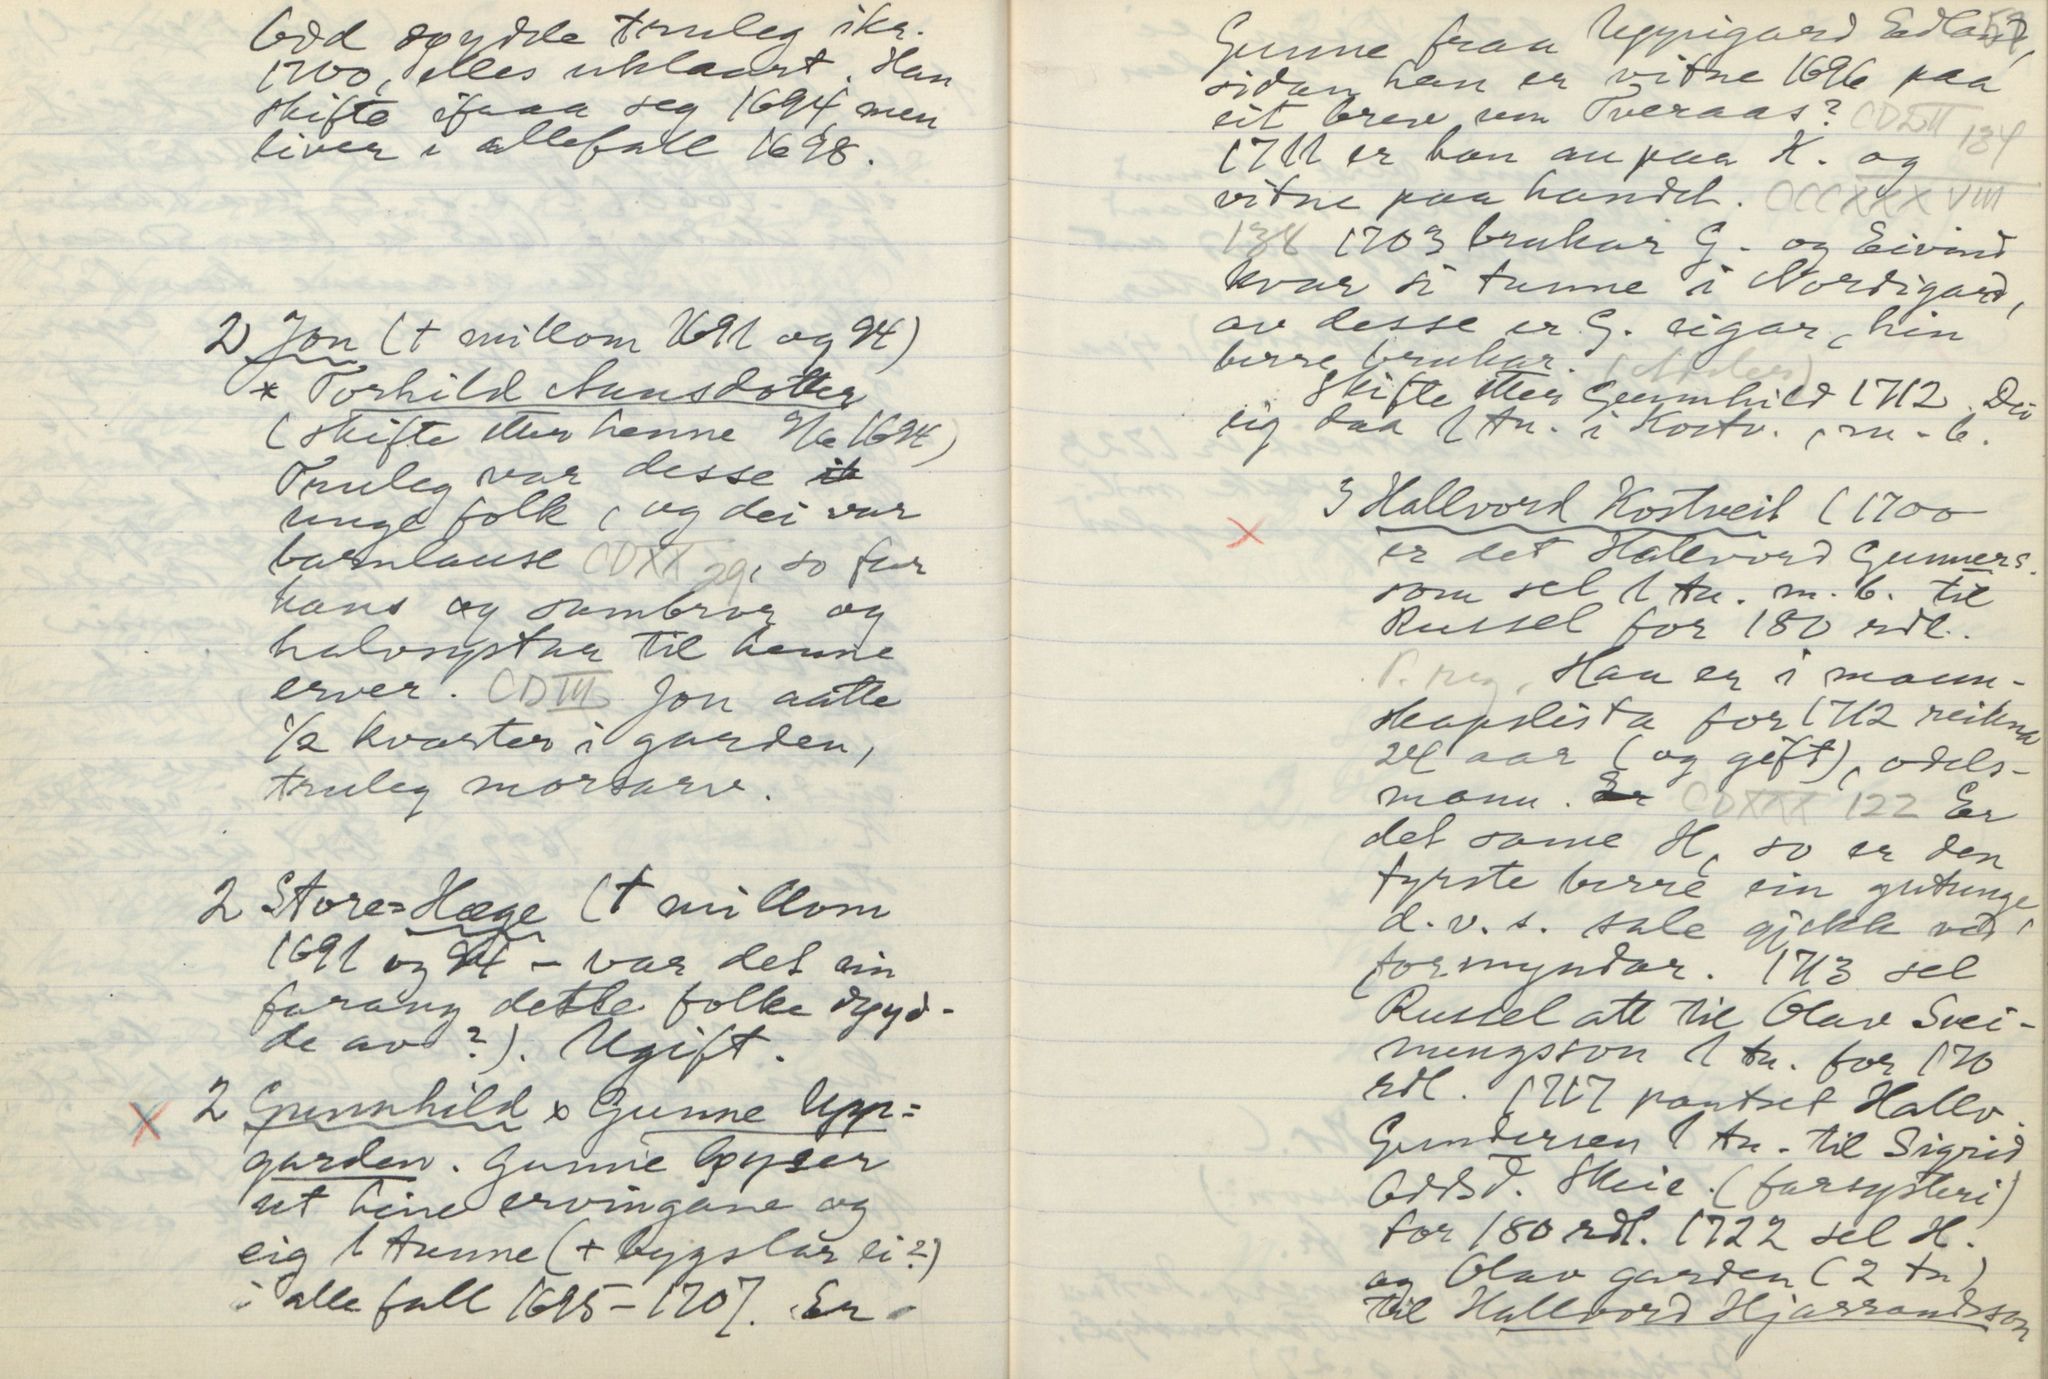 Odd døydde truleg ikr.
1700, elles uklaart. Han
skifte ifraa seg 1694, men
liver i allefall 1698.
2) Jon († millom 1691 og 94)
× Torhild Aunsdotter
(skifte etter henne 9/6 1694)
Truleg var desse
unge folk, og dei var
barnlause CDXX 29, so far
hans og sambror og
halvsystar til henne
erver. CDIII Jon aatte
1/2 kvarter i garden,
truleg morsarv.
2 Store=Hæge († millom
1691 og 94 – var det ein
farang dette folke døyd-
de av?). Ugift.
2 Gunnhild × Gunne Upp=
garden. Gunne løyser
ut hine ervingane og
eig 1 tunne (+ bygslar ei?)
i alle fall 1695–1707. Er
Gunne fraa Uppigard Edland,
sidan han er vitne 1696 paa
eit brev um Tveraas? 134
1711 er han au paa K. og
vitne paa handel. CCCXXXVIII
138 1703 brukar G. og Eivind
kvar si tunne i Nordigard,
av desse er G. eigar, hin
berre brukar.
Skifte etter Gunnhild 1712. Dei
eig daa 1 tn. i Kostv., m. b.
3 Hallvord Kostveit (1700
er det Hallvord Gunners.
som sel 1 tn. m. b. til
Russel for 180 rdl.
P. reg. Han er i mann-
skapslista for 1712 reikna
24 aar (og gift), odels-
mann. CDXXX 122 Er
det same H, so er den
fyrste berre ein gutunge,
d.v.s. sale gjekk ved
formyndar. 1713 sel
Russel att til Olav Svei-
nungsson 1 tn. for 170
rdl. 1717 pantset Hallv.
Gundersen 1 tn. til Sigrid
Oddsd. Skeie. (farsysteri)
for 180 rdl. 1722 sel H.
og Olav garden (2 tn)
til Hallvord Hjarrandsson